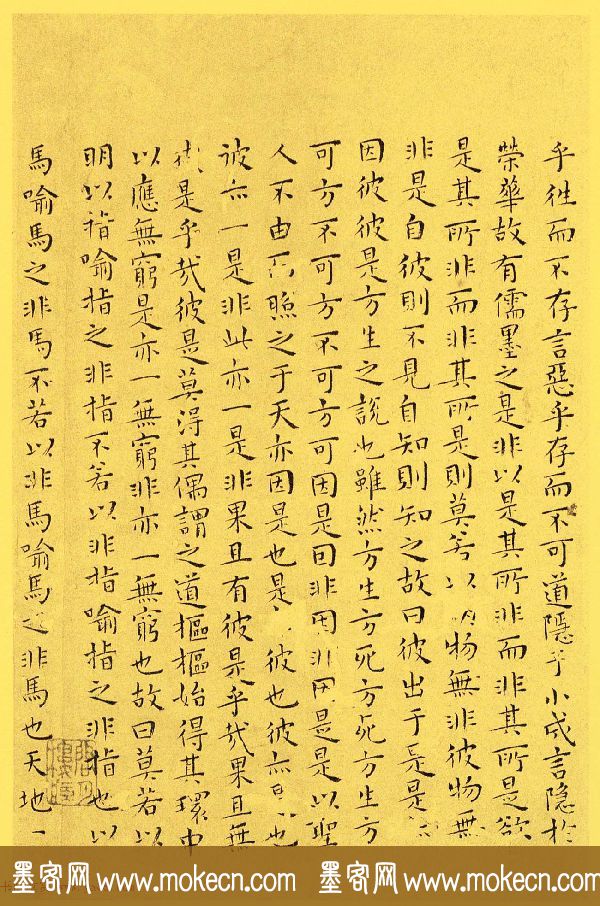 乎往而不存言惡乎存而不可道隱乎小成言隐於
榮華故有儒墨之是非以是其所非而非其所是欲
是其所非而非其所是則莫若以物無非彼物無
非是自彼則不見自知則知之故曰彼出于是是
因彼彼是方生之說也雖然方生方死方死方生方
可方不可方不可方可因是因非因非因是是以聖
人不由而照之于天亦因是也是彼也彼亦是也
彼亦一是非此亦一是非果且有彼是乎哉果且無
彼是乎哉彼是莫得其偶謂之道樞樞始得其環中
以應無窮是亦一無窮非亦一無窮也故曰莫若以
明以指喻指之非指不若以非指喻指之非指也以
馬喻馬之非馬不若以非馬喻馬之非馬也天地一
墨客网 www.mokecn.com 墨客网 www.mokecn.com